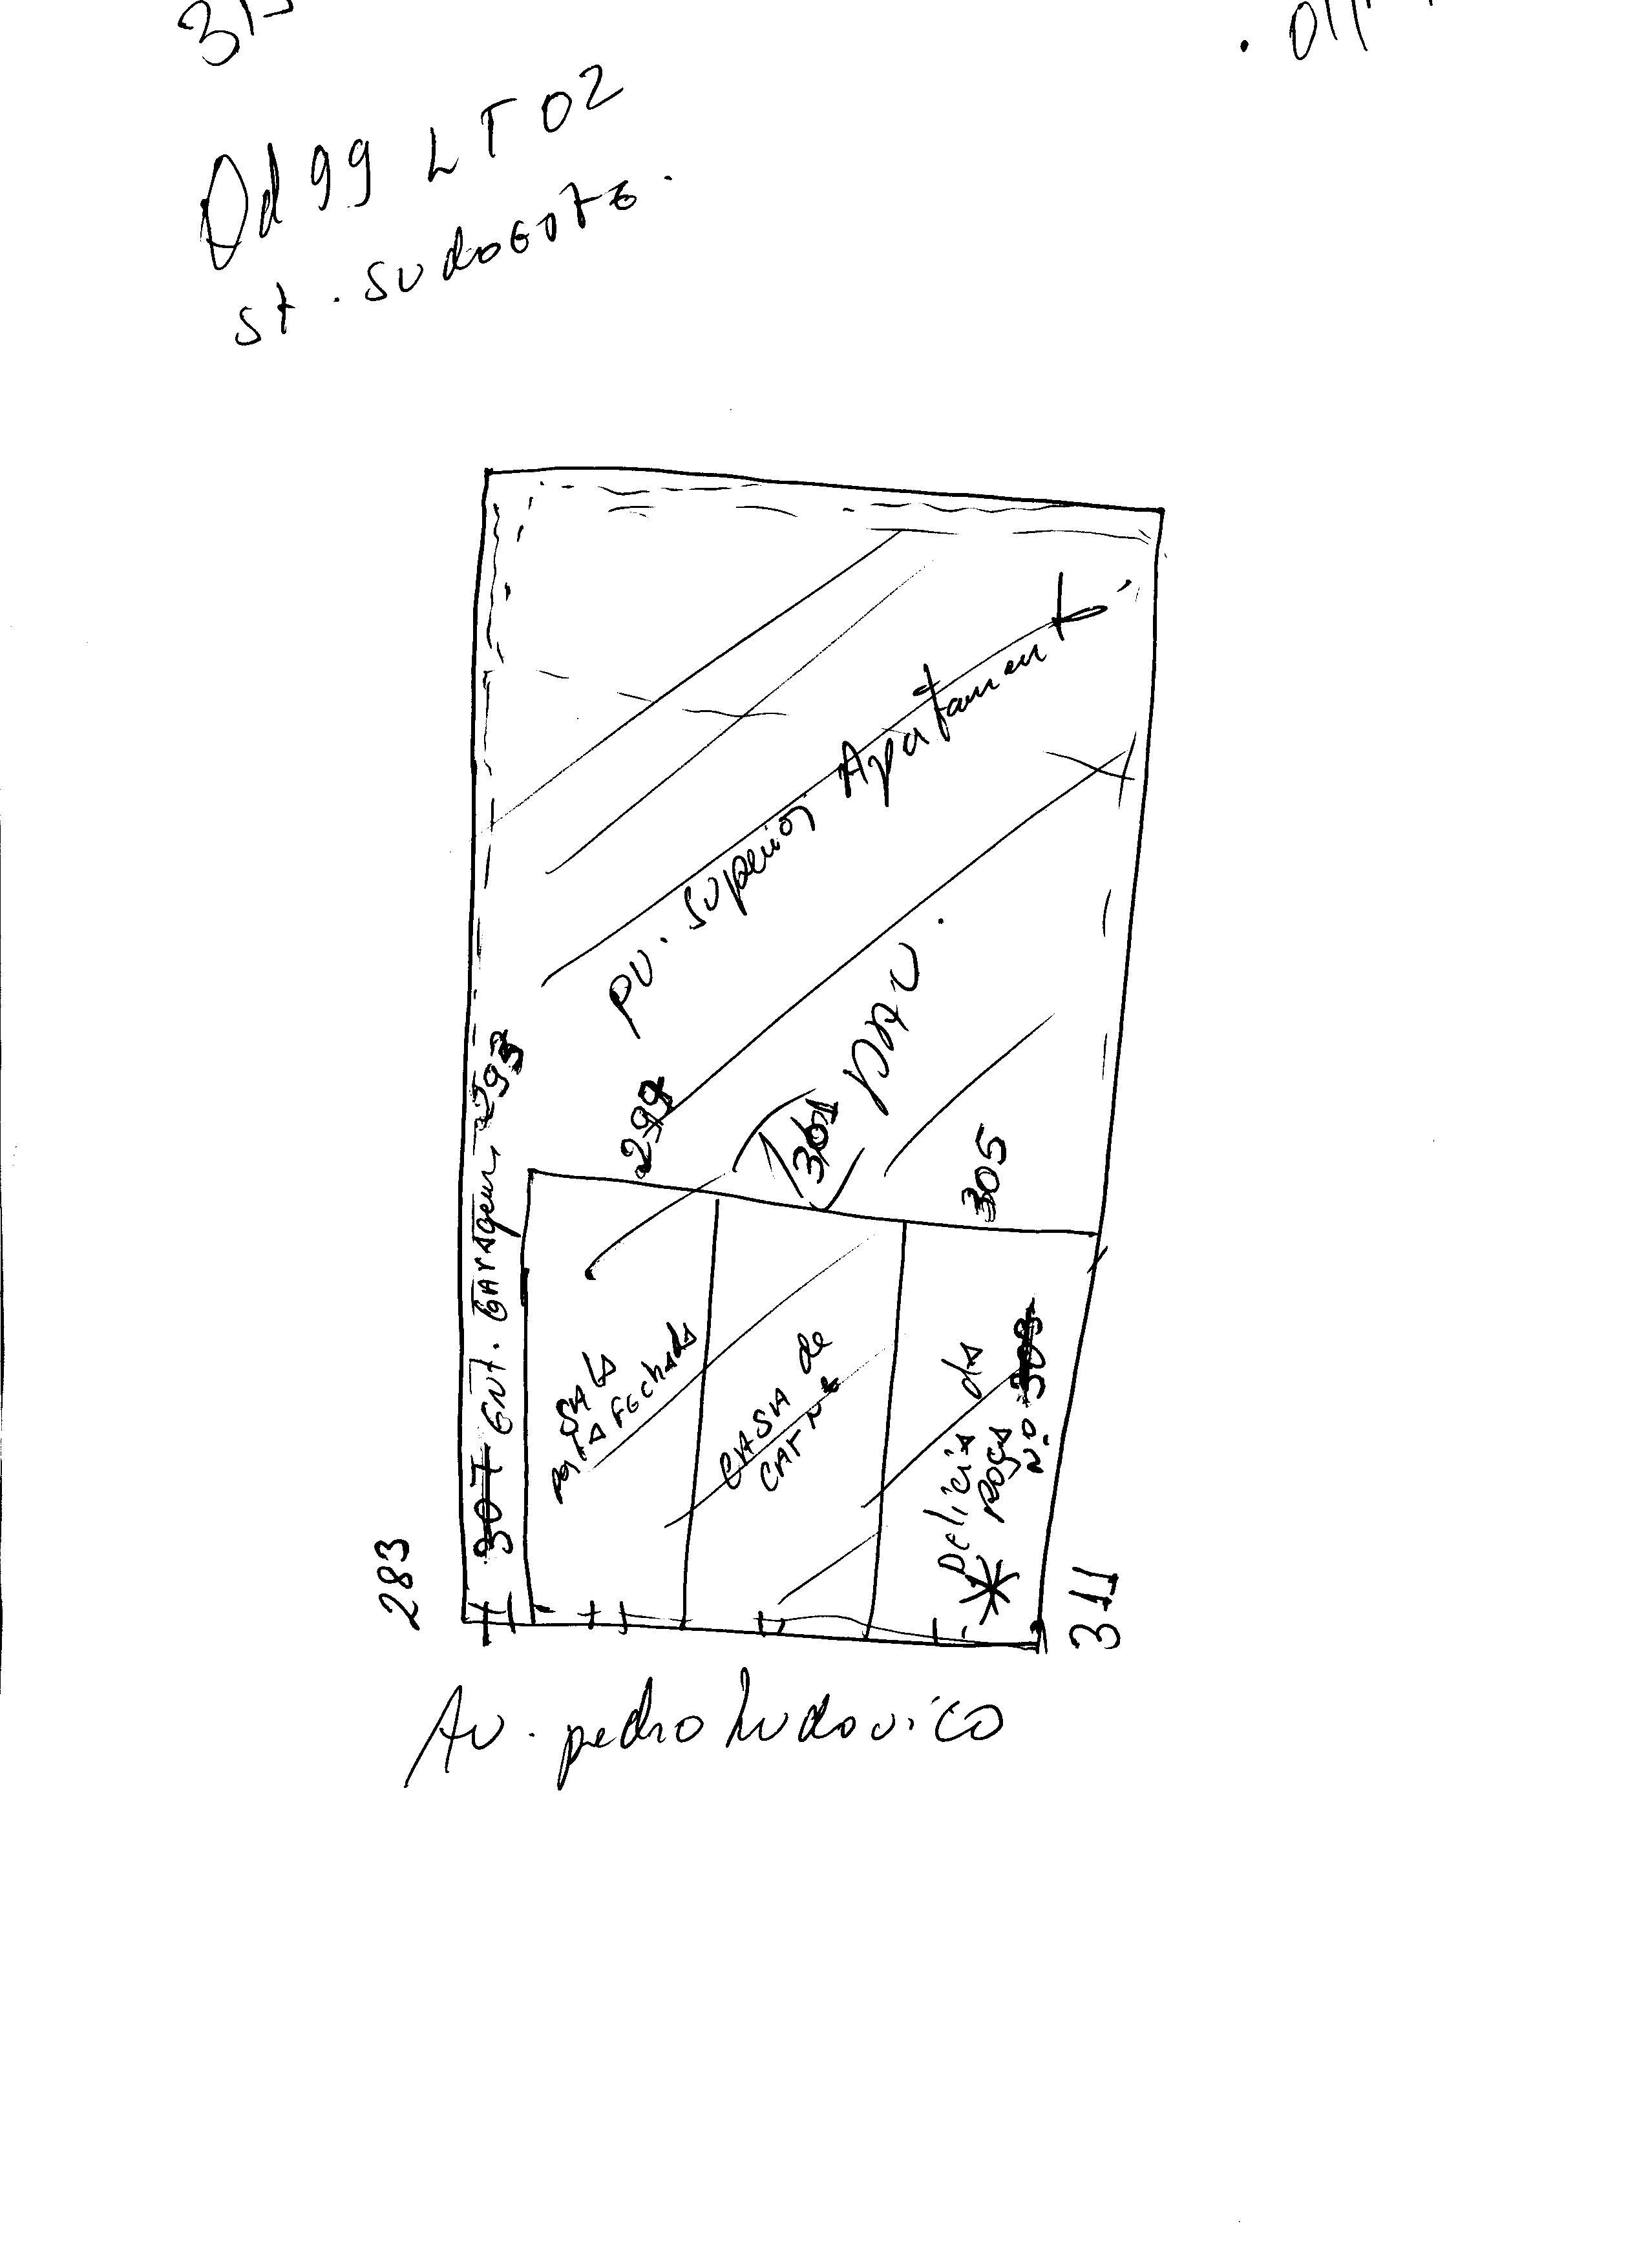 Qd 99 LT 02
St. Sudoeste.
PV. Superior Apartament
PAV.
293
299
301
305
307 Ent. Garagem
SALA
está Fechada
CASA de
CARNE
Delicia da
Roça
N.o 303
283
311
Av. pedro Ludovico